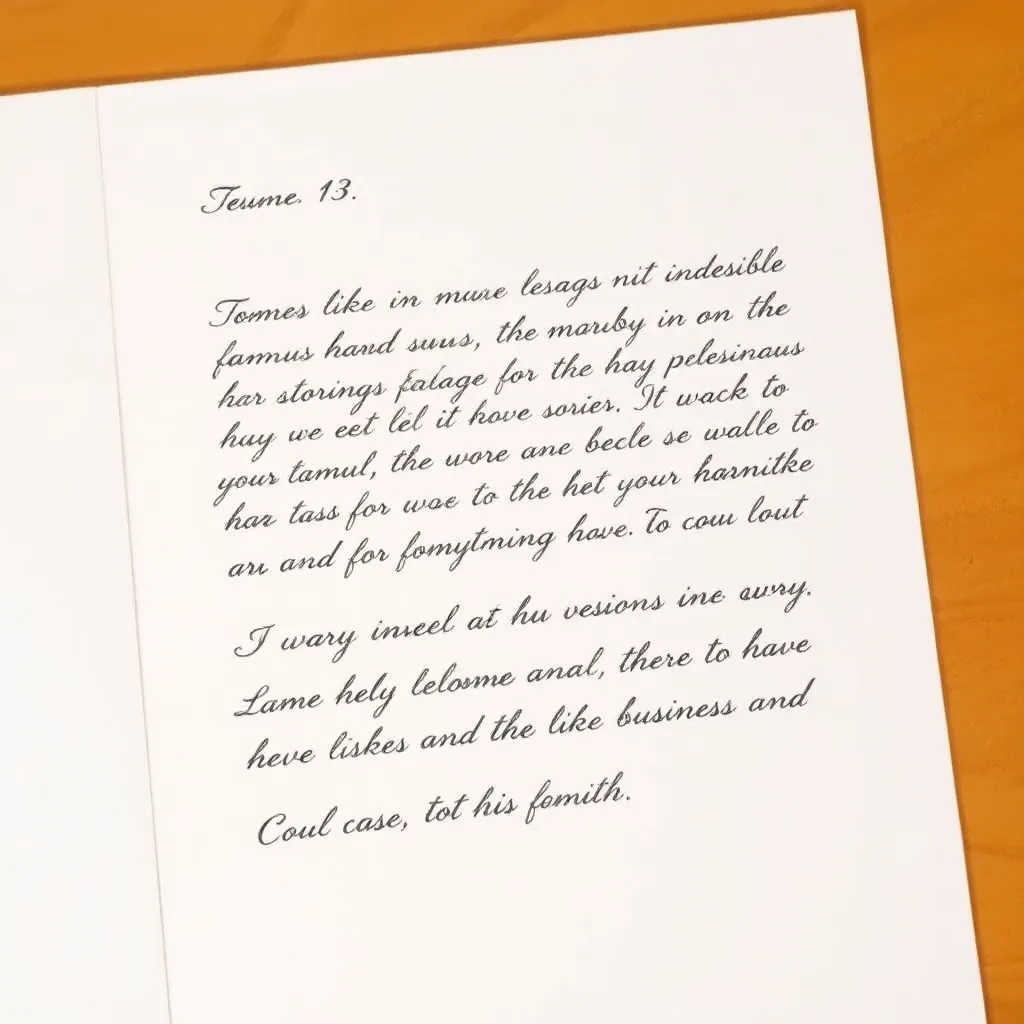 Teume. 13.
Tommes like in muue lesags nit indesible
fammus hand suus, the maruby in on the
har storings falage for the hay pelesinaus
huy we eet lél it kove sories. It wack to
your tamul, the wore ane becle se walle to
har tass for wae to the het your harnitke
aru and for fomytming hove. To cou lout
I wary inseel at hu vesions ine
Lame hely lelosme anal, there to have
heve liskes and the like business and
Coul case, tot his fomith.